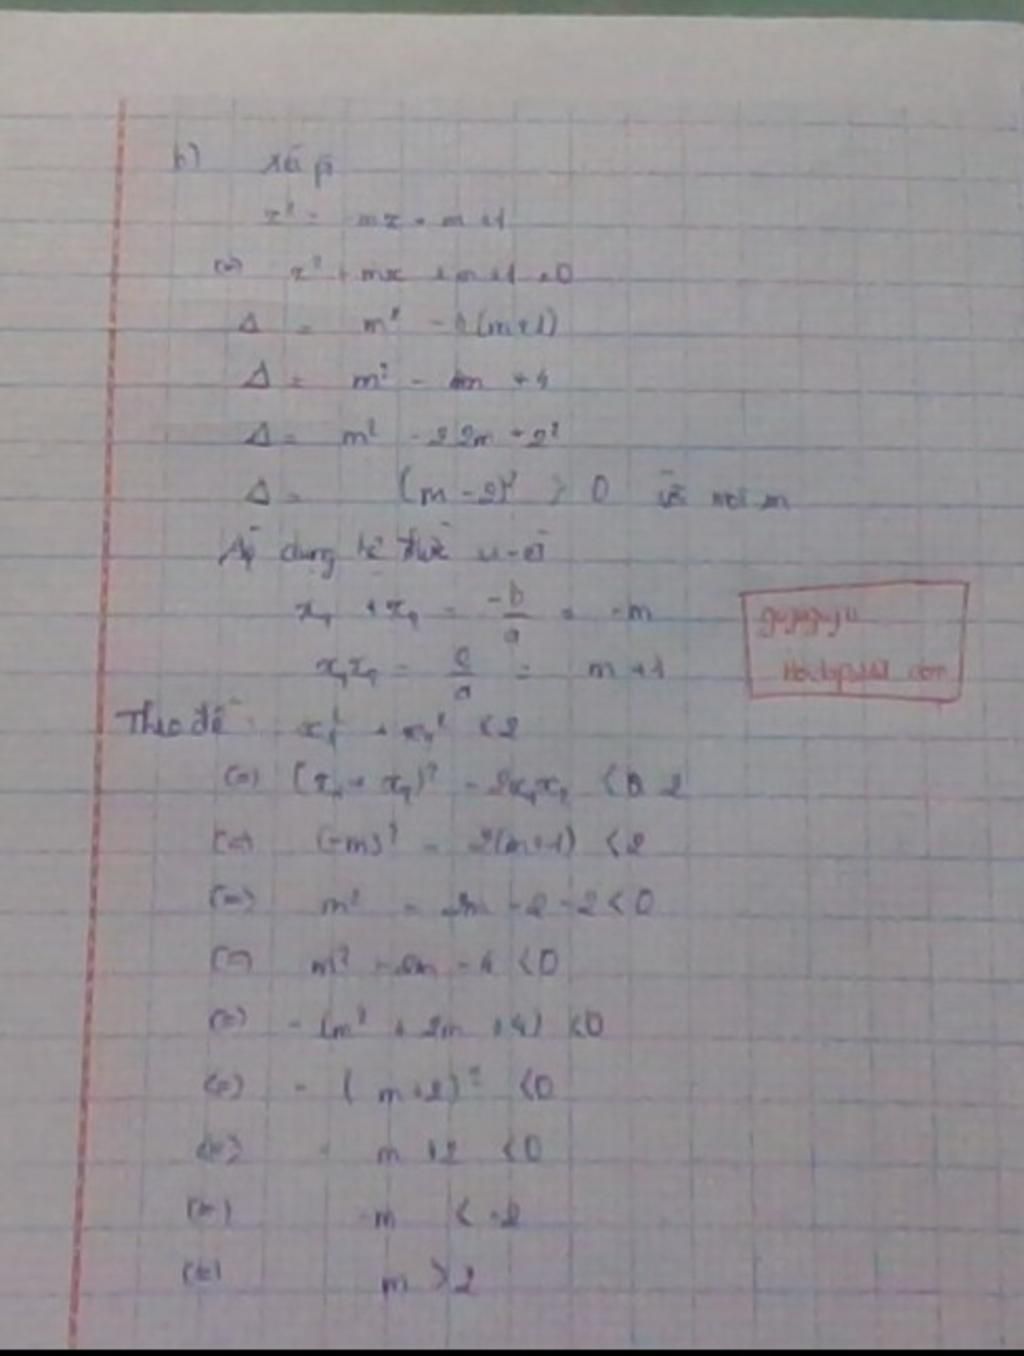 b) Xét pt
x² = -mx + m+1
(=) x² + mx + m+1 = 0
Δ = m² - 4(m+1)
Δ = m² - 4m + 4
Δ = m² - 2.2m + 2²
Δ = (m-2)² > 0 với mọi m
Áp dụng hệ thức vi-ét
x₁ + x₂ = -b/a = -m
x₁x₂ = c/a = m+1
Theo đề: x₁² + x₂² < 2
(=) (x₁ + x₂)² - 2x₁x₂ < 2
(=) (-m)² - 2(m+1) < 2
(=) m² - 2m - 2 - 2 < 0
(=) m² - 2m - 4 < 0
(=) - (m² + 2m + 4) < 0
(=) - (m+2)² < 0
(=) - m + 2 < 0
(=) -m < -2
(=) m > 2